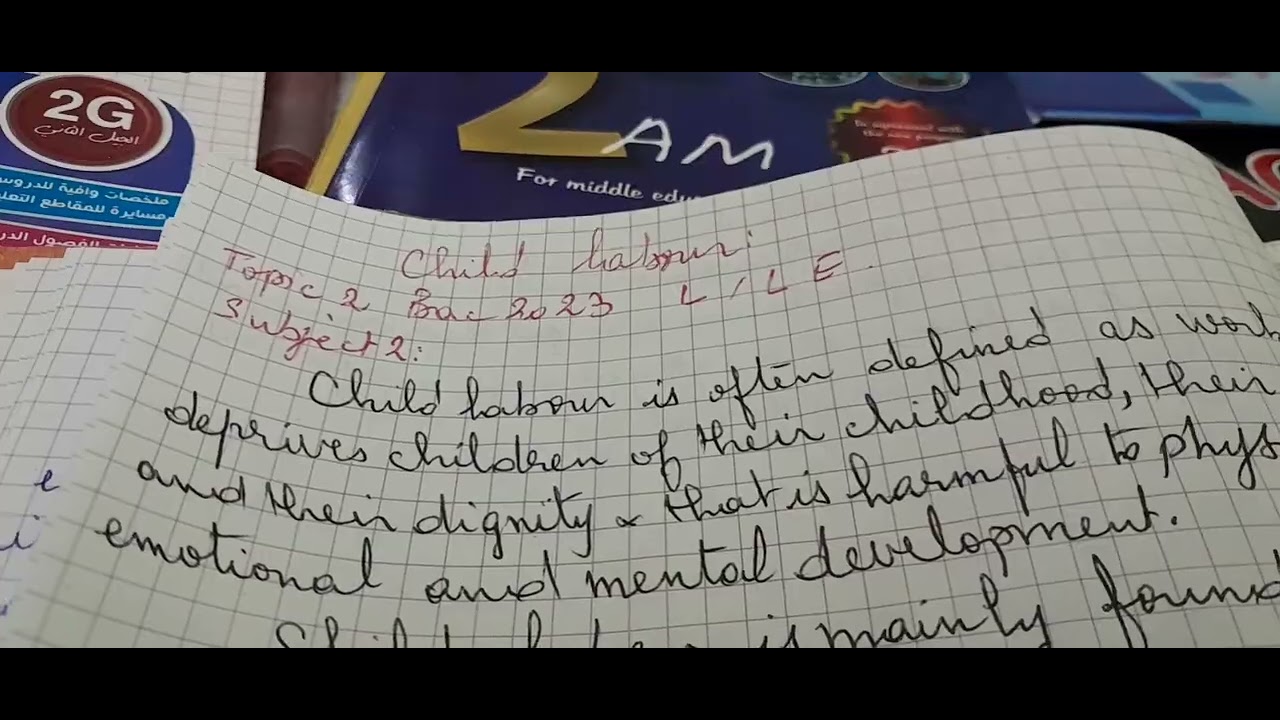 2G
الجيل الثاني
ملخصات وافية للدروس
مسايرة للمقاطع
2 AM
For middle
Child Labour:
Topic 2 Bac 2023 L / L E.
Subject 2:
Child Labour is often defined as
deprives children of their childhood, their
and their dignity & that is harmful to
emotional and mental development.
is mainly found